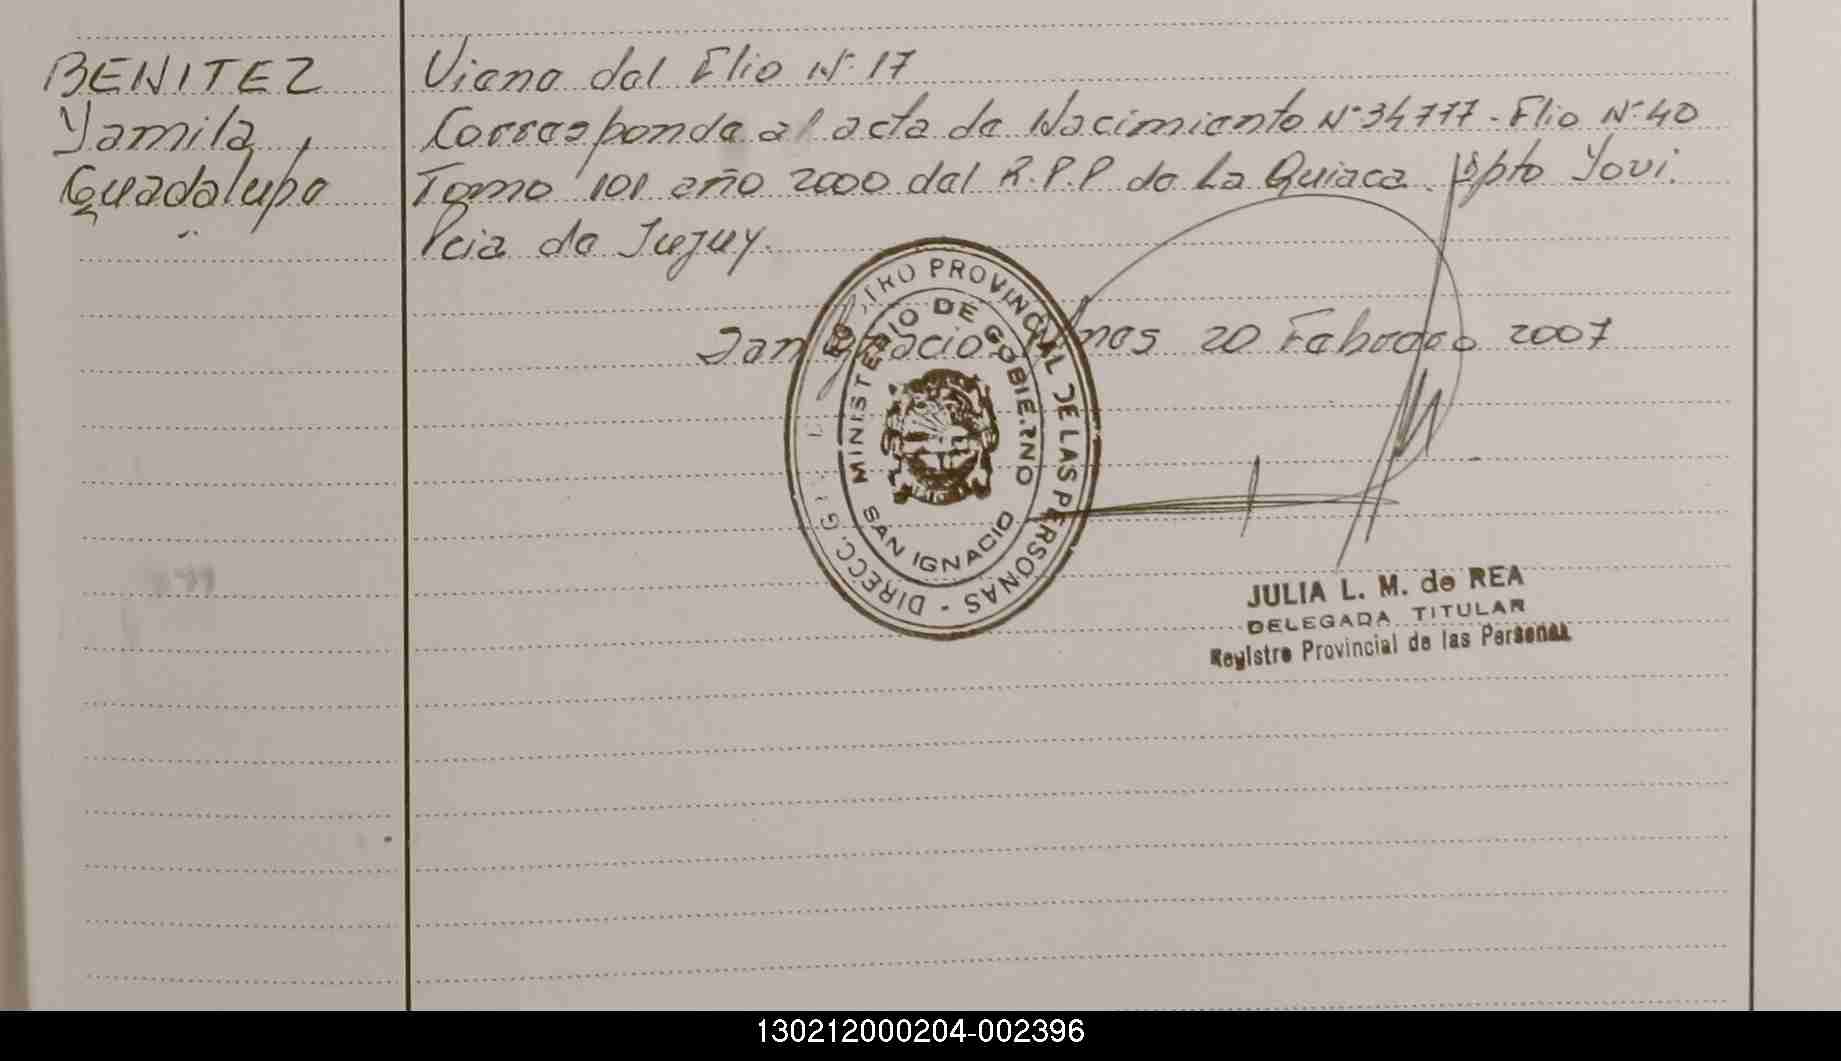 BENITEZ
Yamila,
Guadalupe
Viene del Flio Nº 17
Corresponde al acta de Nacimiento Nº 34777 - Flio Nº 40
Tomo 101 año 2000 del R.P.P de La Quiaca. Dpto Yavi.
Pcia de Jujuy.
San Ignacio, 20 Febrero 2007
DIRECC. G PROVINCIAL DE LAS PERSONAS -
MINISTERIO DE GOBIERNO
SAN IGNACIO
JULIA L. M. de REA
DELEGADA TITULAR
Registro Provincial de las Personas
130212000204-002396